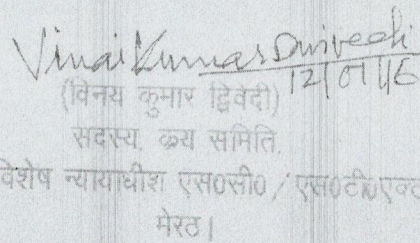 Vinai Kumar Dwivedi
12/01/16
(विनय कुमार द्विवेदी)
सदस्य, क्रय समिति,
विशेष न्यायाधीश एस0सी0/एस0टी0एक्ट
मेरठ।